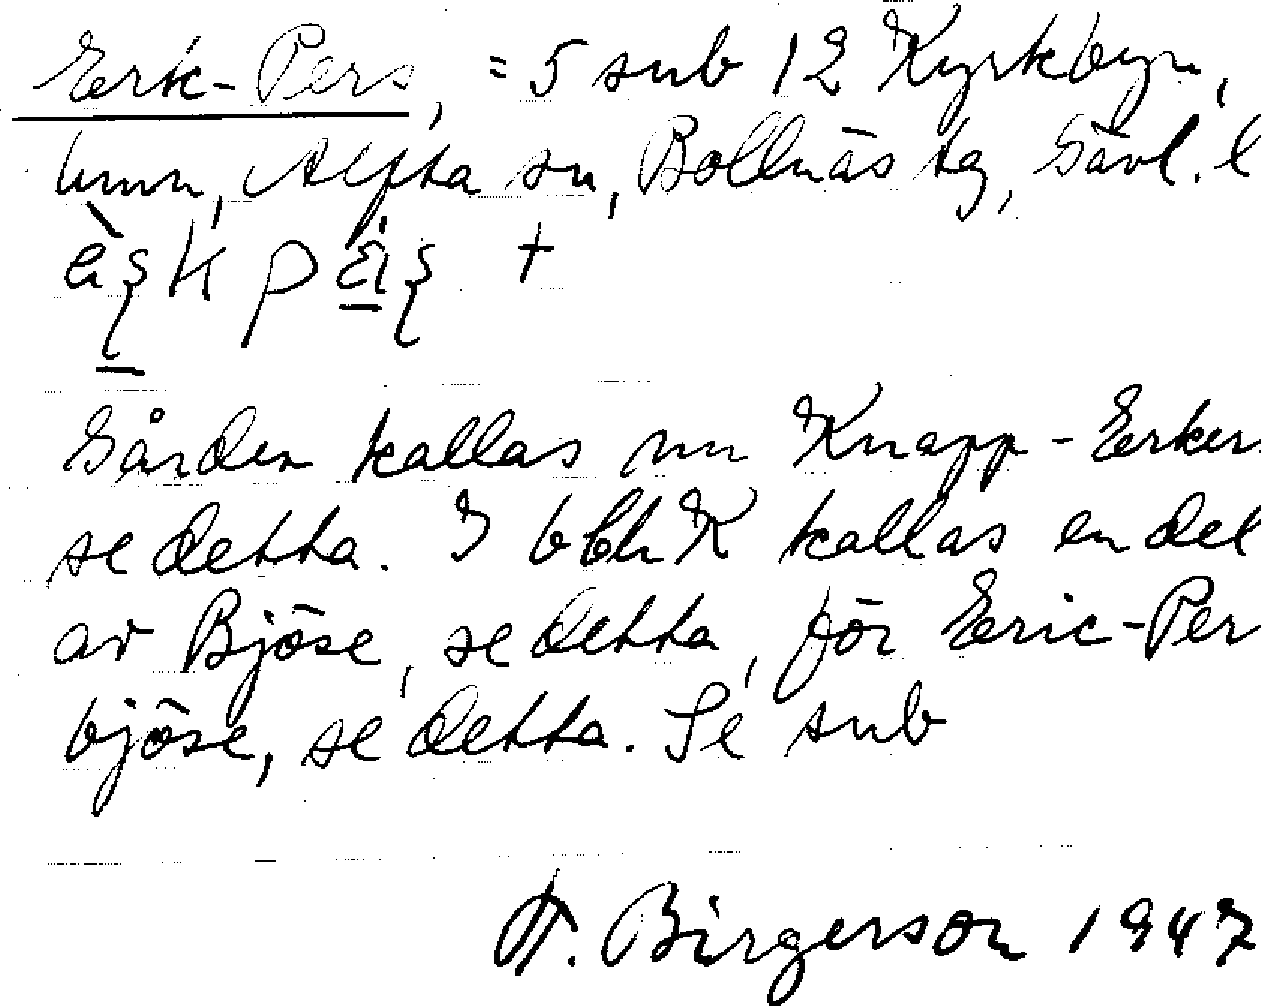 Erik-Pers, = 5 sub 12 Kyrkbyn,
hmn, Alfta sn, Bollnäs tg, Gävl. l
Gården kallas nu Knapp-Erkers
se detta. I bblK kallas en del
av Bjöse, se detta, för Eric-Per
bjöse, se detta. Se sub
A. Birgerson 1947